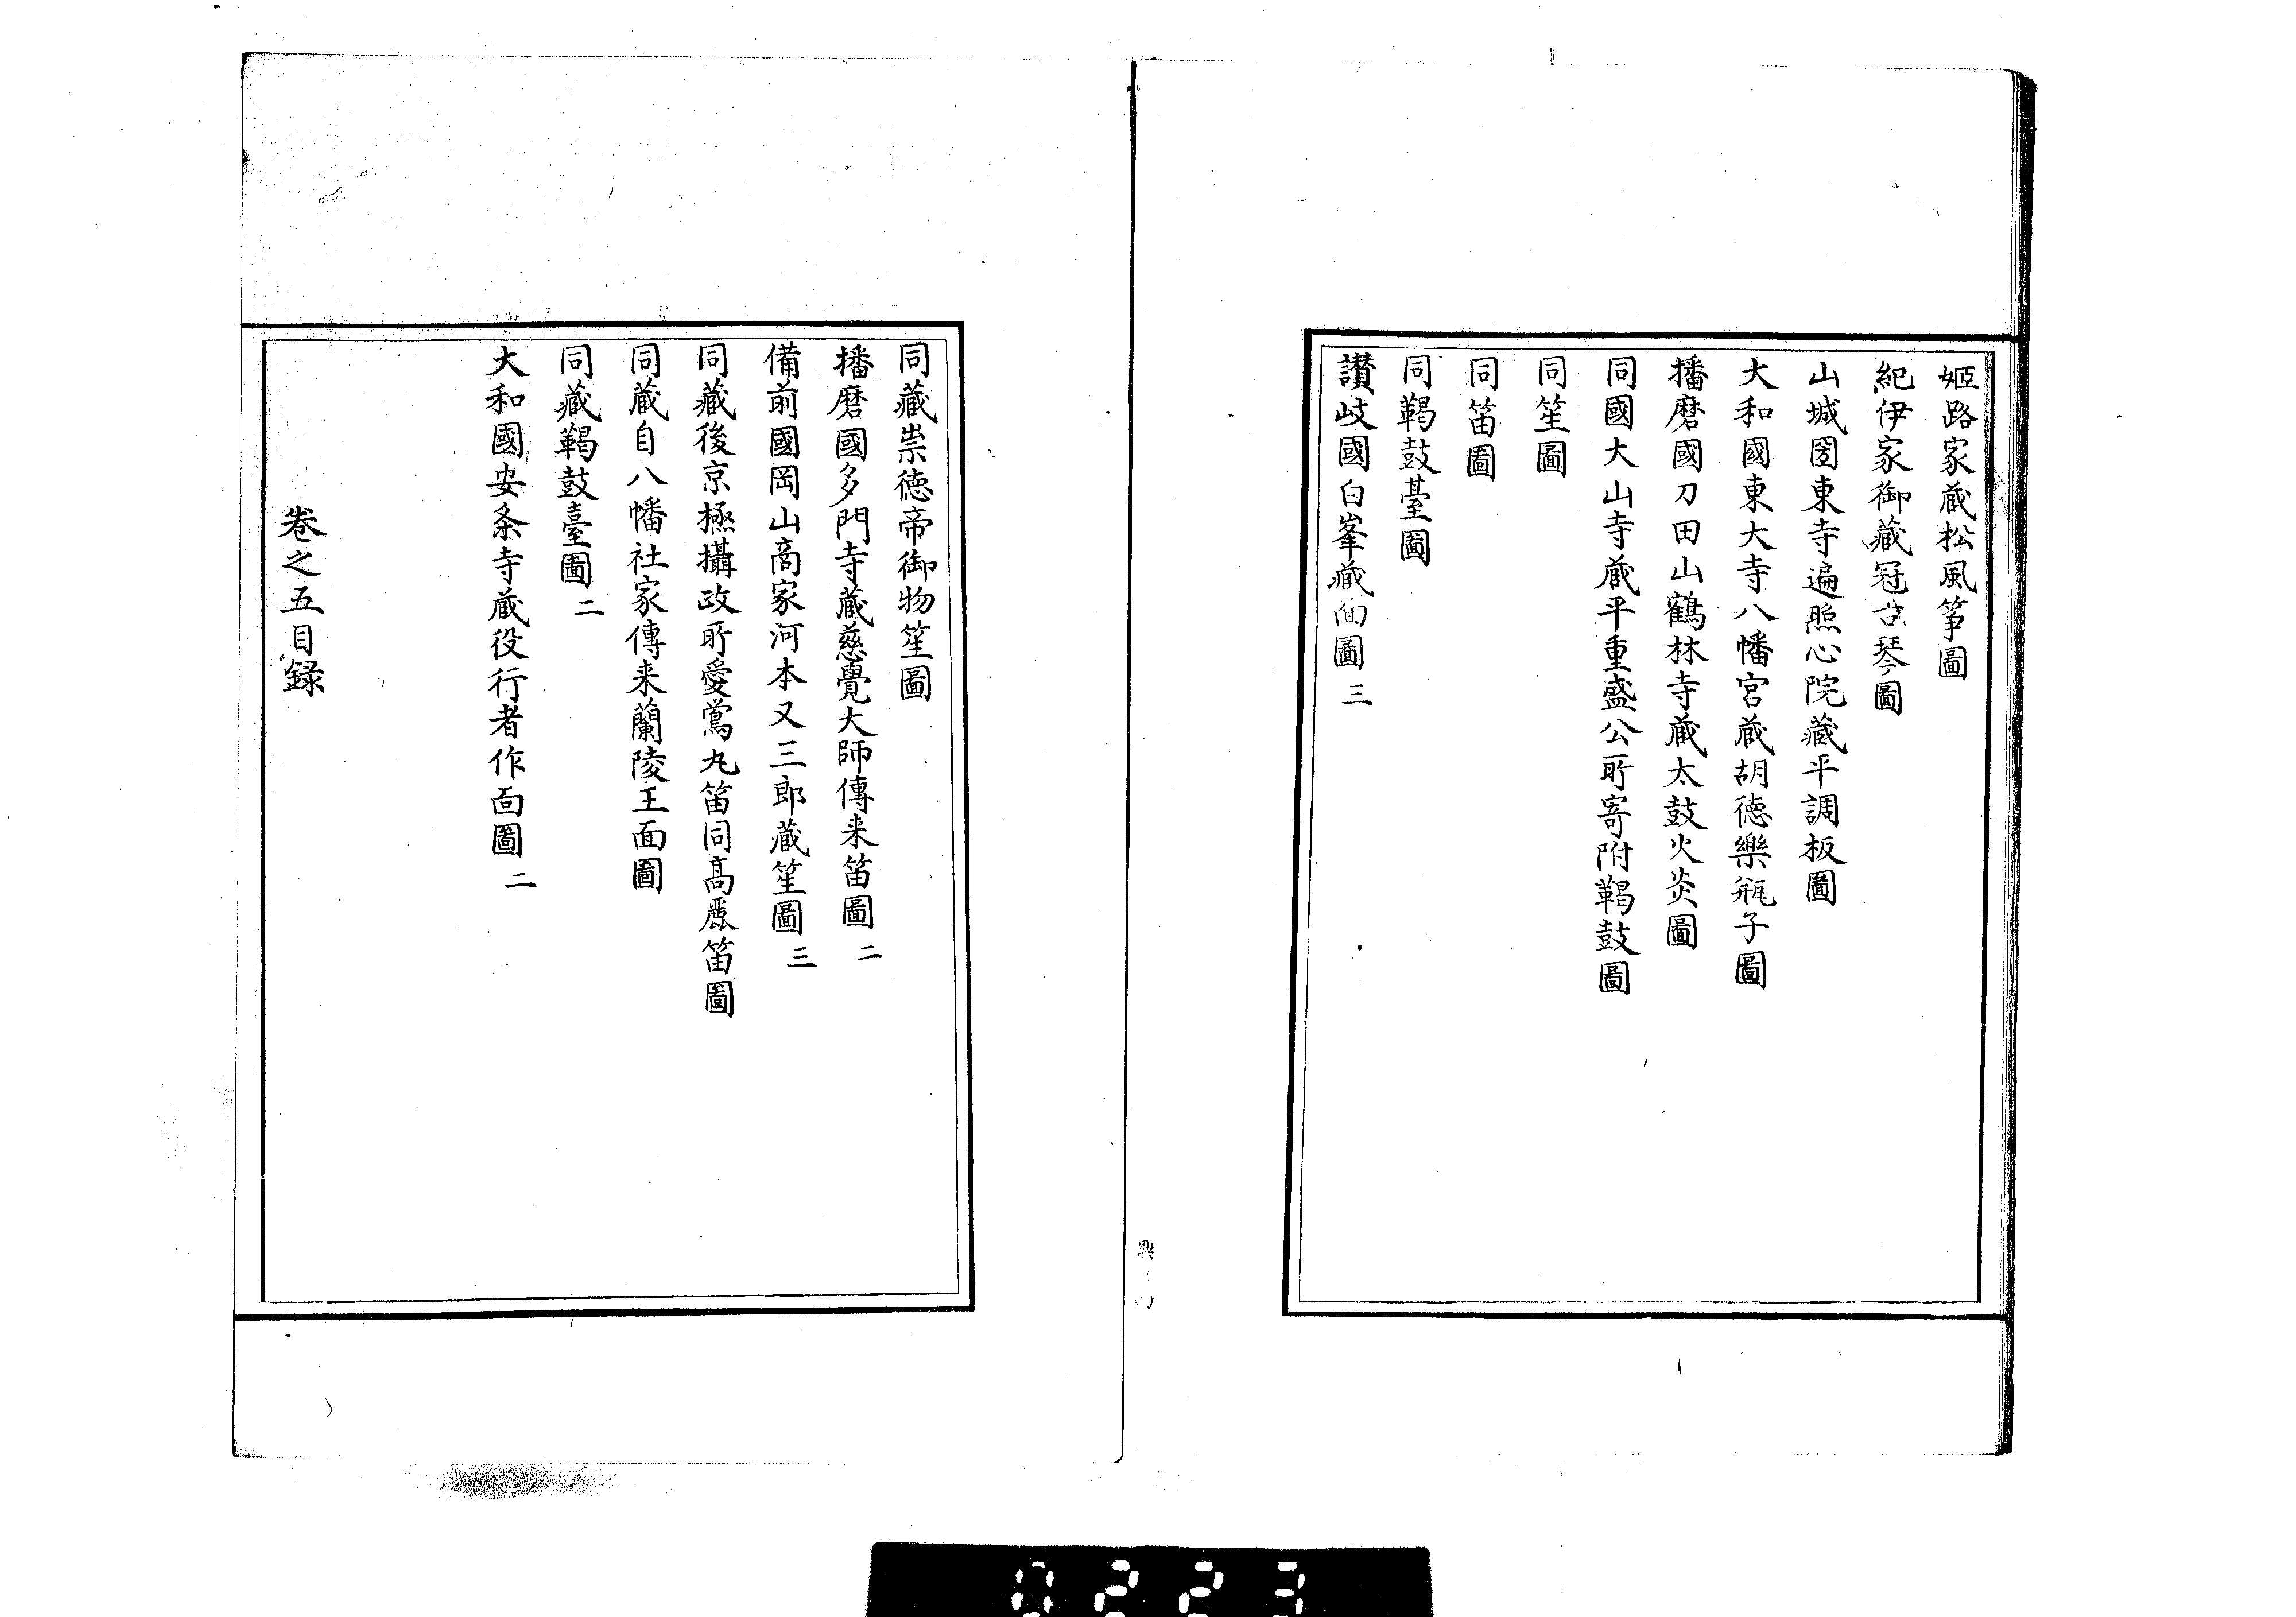 姬路家蔵松風箏圖
紀伊家御藏冠古琴圖
山城圀東寺遍照心院藏平調板圖
大和國東大寺八幡宮蔵胡德樂瓶子圖
播磨國刀田山鶴林寺蔵太鼓火炎圖
同國大山寺蔵平重盛公所寄附鞨鼓圖
同笙圖
同笛圖
同鞨鼓臺圖
讃岐國白峯蔵面圖 三
同藏崇徳帝御物笙圖
播磨國多門寺蔵慈覺大師傳来笛圖 二
備前國岡山商家河本又三郎蔵笙圖 三
同藏後京極攝政所愛鶯丸笛同高麗笛圖
同蔵自八幡社家傳来蘭陵王面圖
同藏鞨鼓臺圖 二
大和國安条寺蔵役行者作面圖 二
卷之五目録
樂
0223